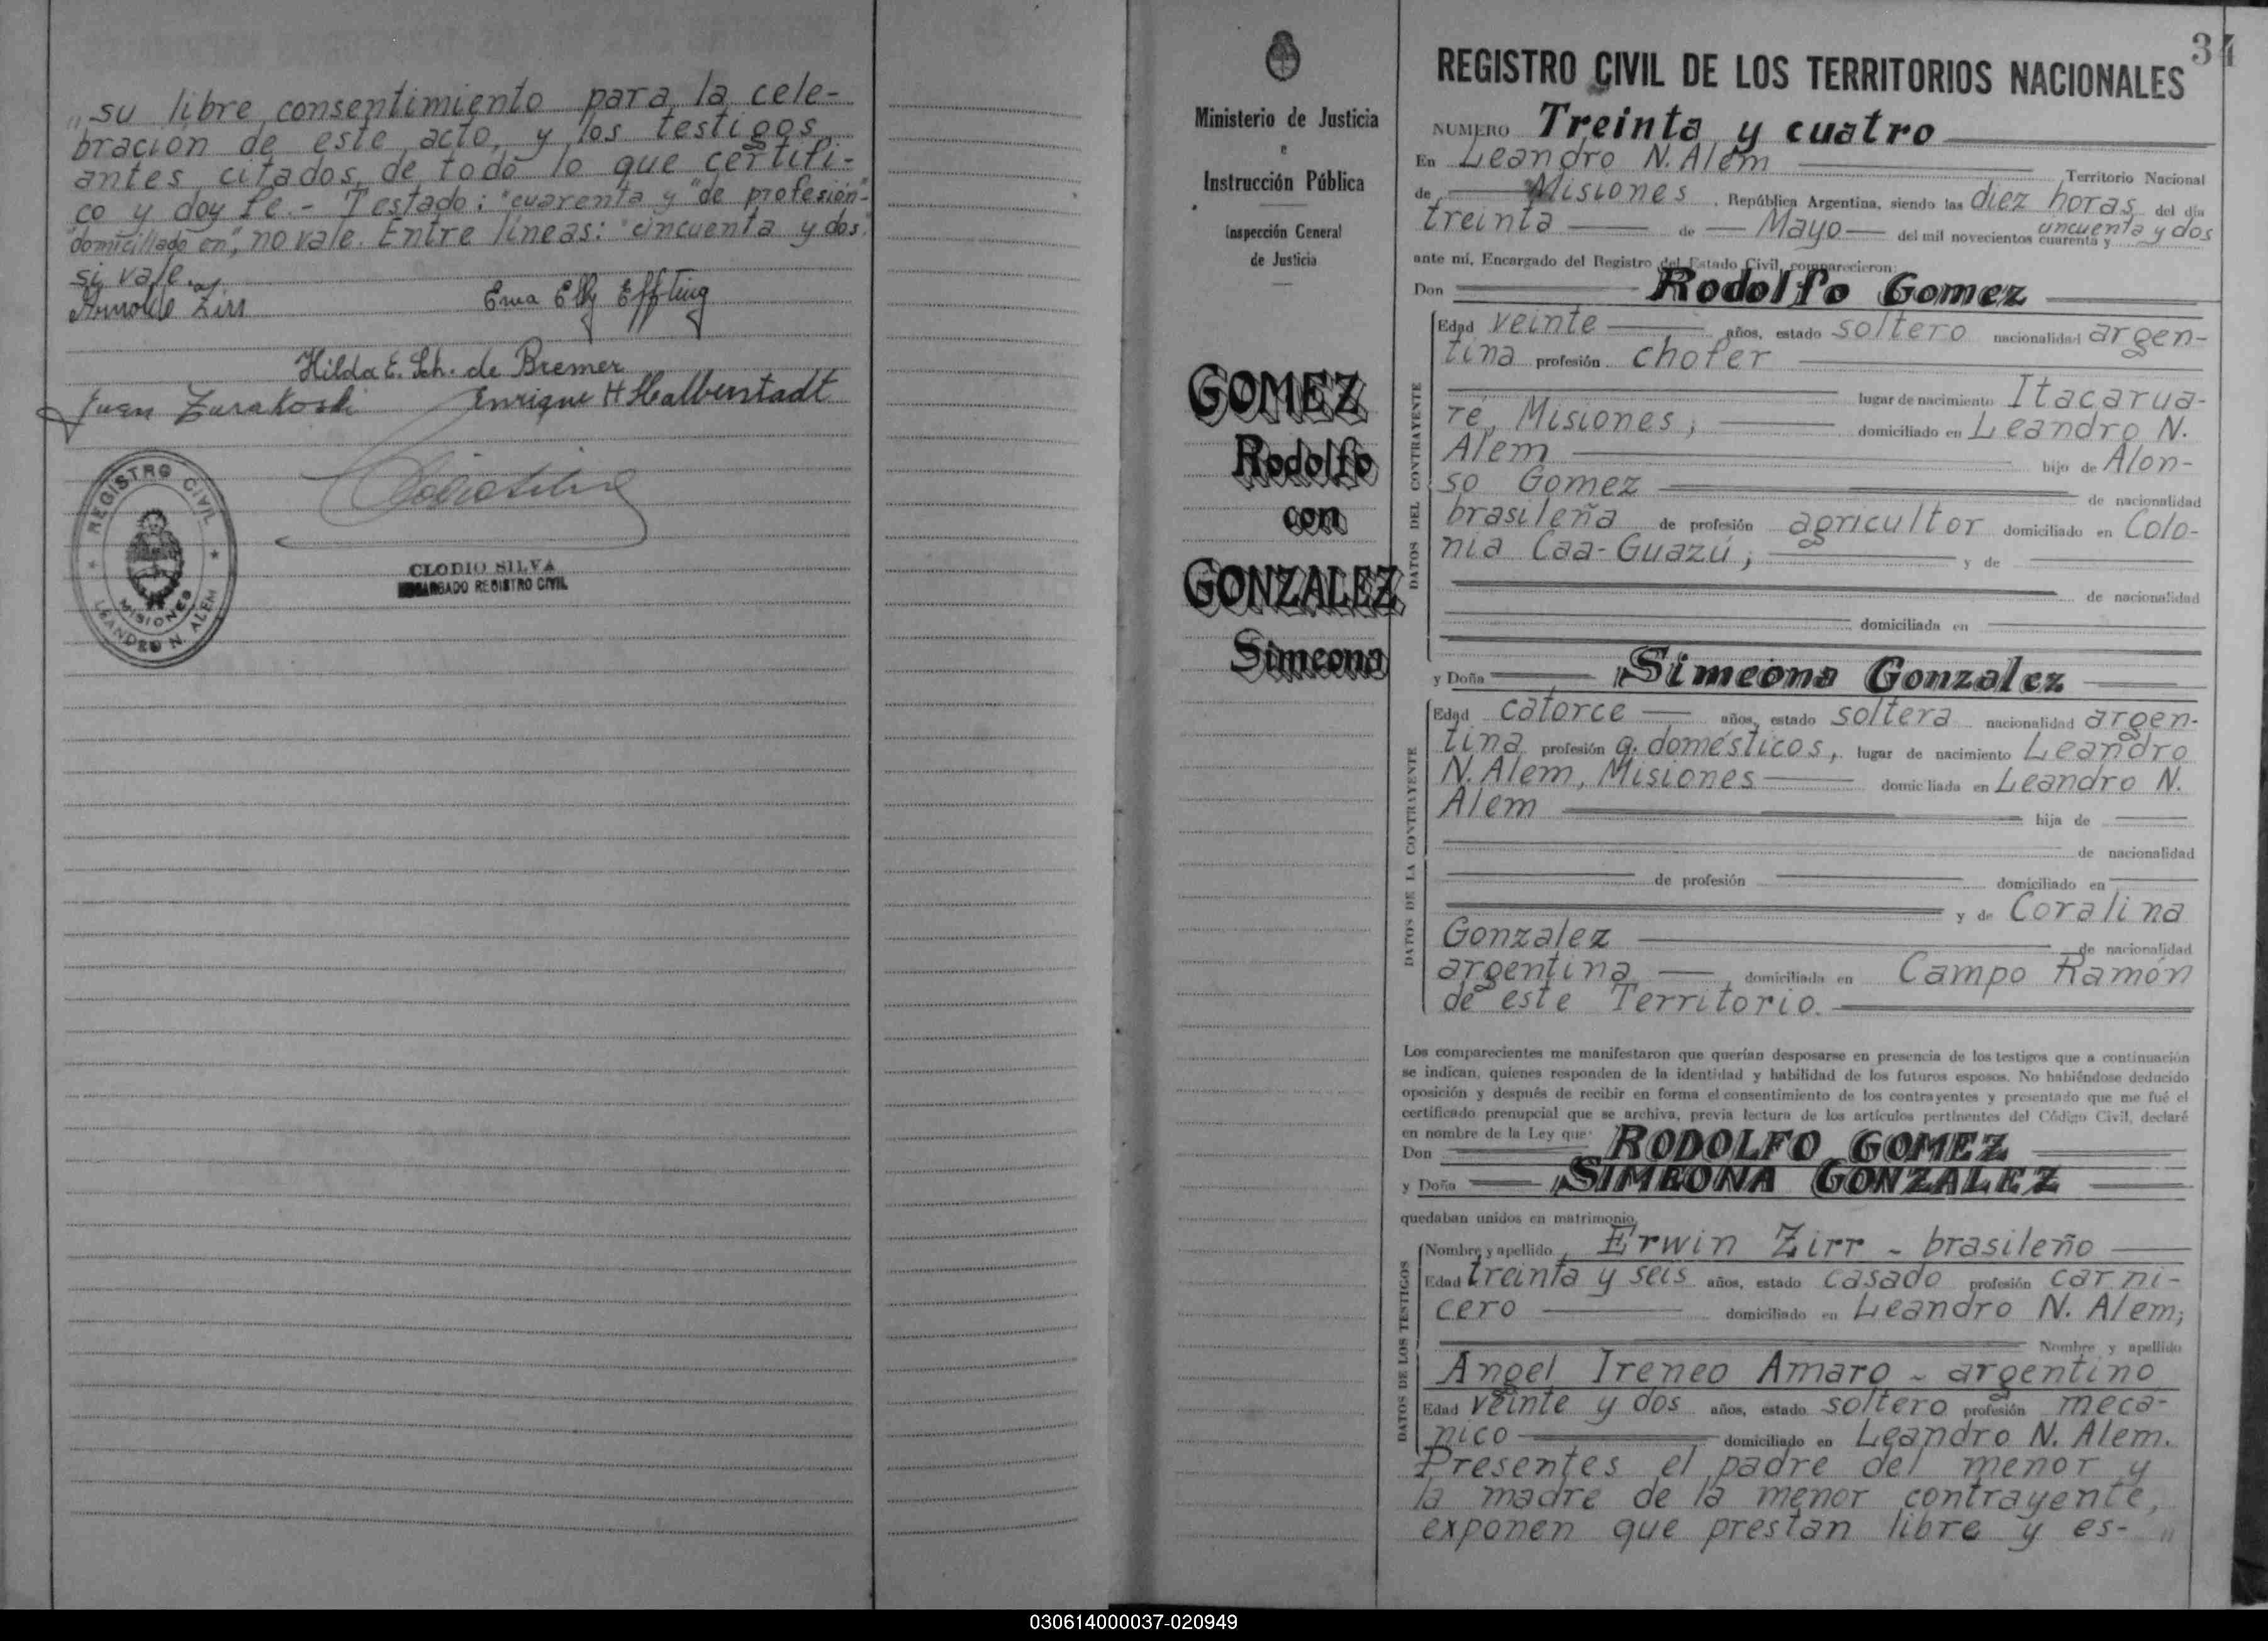 su libre consentimiento para la cele-
bración de este acto, y los testigos
antes citados, de todo lo que certifi-
co y doy fe.- Testado: "cuarenta y "de profesión"
"domiciliado en", no vale. Entre líneas: "cincuenta y dos"
si vale.
Arnoldo Zirr
Erna Elly Effting
Hilda E. Sch. de Bremer
Juan Zurakoski
Enrique H Halberstadt
REGISTRO CIVIL
MISIONES
LEANDRO N. ALEM
CLODIO SILVA
ENCARGADO REGISTRO CIVIL
34
Ministerio de Justicia
e
Instrucción Pública
Inspección General
de Justicia
GOMEZ
Rodolfo
con
GONZALEZ
Simeona
REGISTRO CIVIL DE LOS TERRITORIOS NACIONALES
NUMERO Treinta y cuatro
En Leandro N. Alem Territorio Nacional
de Misiones, República Argentina, siendo las diez horas del día
cincuenta y dos
treinta de Mayo del mil novecientos cuarenta y
ante mí, Encargado del Registro del Estado Civil, comparecieron:
Don Rodolfo Gomez
DATOS DEL CONTRAYENTE
Edad veinte años, estado soltero nacionalidad argen-
tina profesión chofer
lugar de nacimiento Itacarua-
ré, Misiones, domiciliado en Leandro N.
Alem hijo de Alon-
so Gomez de nacionalidad
brasileña de profesión agricultor domiciliado en Colo-
nia Caa-Guazú; y de
de nacionalidad
domiciliada en
y Doña Simeona Gonzalez
DATOS DE LA CONTRAYENTE
Edad catorce años, estado soltera nacionalidad argen-
tina profesión q. domésticos, lugar de nacimiento Leandro
N. Alem, Misiones domiciliada en Leandro N.
Alem hija de
de nacionalidad
de profesión domiciliado en
y de Coralina
Gonzalez de nacionalidad
argentina domiciliada en Campo Ramón
de este Territorio.
Los comparecientes me manifestaron que querían desposarse en presencia de los testigos que a continuación
se indican, quienes responden de la identidad y habilidad de los futuros esposos. No habiéndose deducido
oposición y después de recibir en forma el consentimiento de los contrayentes y presentado que me fué el
certificado prenupcial que se archiva, previa lectura de los artículos pertinentes del Código Civil, declaré
en nombre de la Ley que:
Don RODOLFO GOMEZ
y Doña SIMEONA GONZALEZ
quedaban unidos en matrimonio.
DATOS DE LOS TESTIGOS
Nombre y apellido, Erwin Zirr - brasileño
Edad treinta y seis años, estado casado profesión carni-
cero domiciliado en Leandro N. Alem;
Nombre y apellido
Angel Ireneo Amaro - argentino
Edad veinte y dos años, estado soltero profesión mecá-
nico domiciliado en Leandro N. Alem.
Presentes el padre del menor y
la madre de la menor contrayente,
exponen que prestan libre y es- "
030614000037-020949